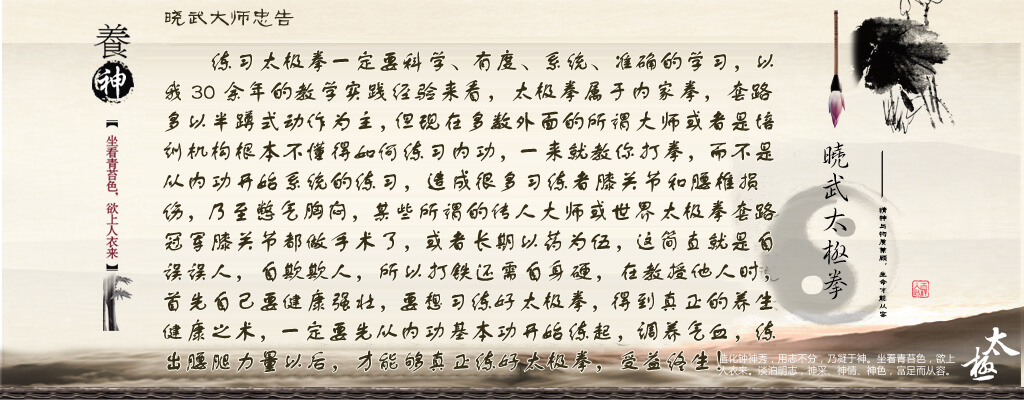 晓武大师忠告
練习太极拳一定要科学、有度、系统、准确的学习，以
我 30 余年的教学实践经验来看，太极拳属于内家拳，套路
多以半蹲式动作为主，但现在多数外面的所谓大师或者是培
训机构根本不懂得如何练习内功，一来就教你打拳，而不是
从内功开始系统的练习，造成很多习练者膝关节和腰椎损
伤，乃至憋气胸闷，某些所谓的传人大师或世界太极拳套路
冠军膝关节都做手术了，或者长期以药为伍，这简直就是自
误误人，自欺欺人，所以打铁还需自身硬，在教授他人时，
首先自己要健康强壮，要想习练好太极拳，得到真正的养生
健康之术，一定要先从内功基本功开始练起，调养气血，练
出腰腿力量以后，才能够真正练好太极拳，受益终生！
養
神
【坐看青苔色，欲上人衣来】
晓武太極拳
精神与物质兼顾，生命才能从容
造化钟神秀，用志不分，乃凝于神。坐看青苔色，欲上
人衣来。谈泊明志，神采、神情、神色，富足而从容。
太極